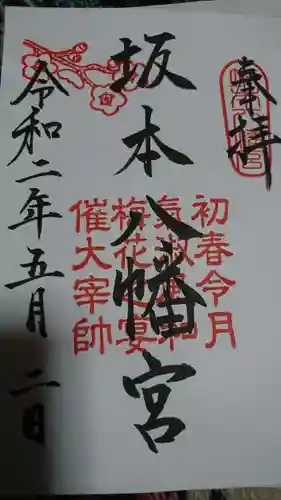 奉拝
坂本八幡宮
初春令月
気淑風和
梅花之宴
催大宰帥
令和二年五月二日